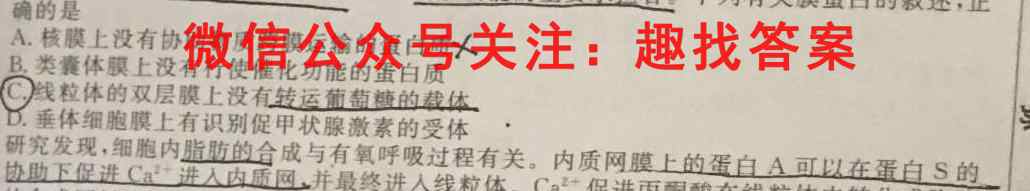 确的是
微信公众号关注：趣找答案
A. 核膜上没有协质膜运输的蛋白
B. 类囊体膜上没有行使催化功能的蛋白质
C. 线粒体的双层膜上没有转运葡萄糖的载体
D. 垂体细胞膜上有识别促甲状腺激素的受体
研究发现，细胞内脂肪的合成与有氧呼吸过程有关。内质网膜上的蛋白 A 可以在蛋白 S 的
协助下促进 Ca²⁺ 进入内质网，并最终进入线粒体